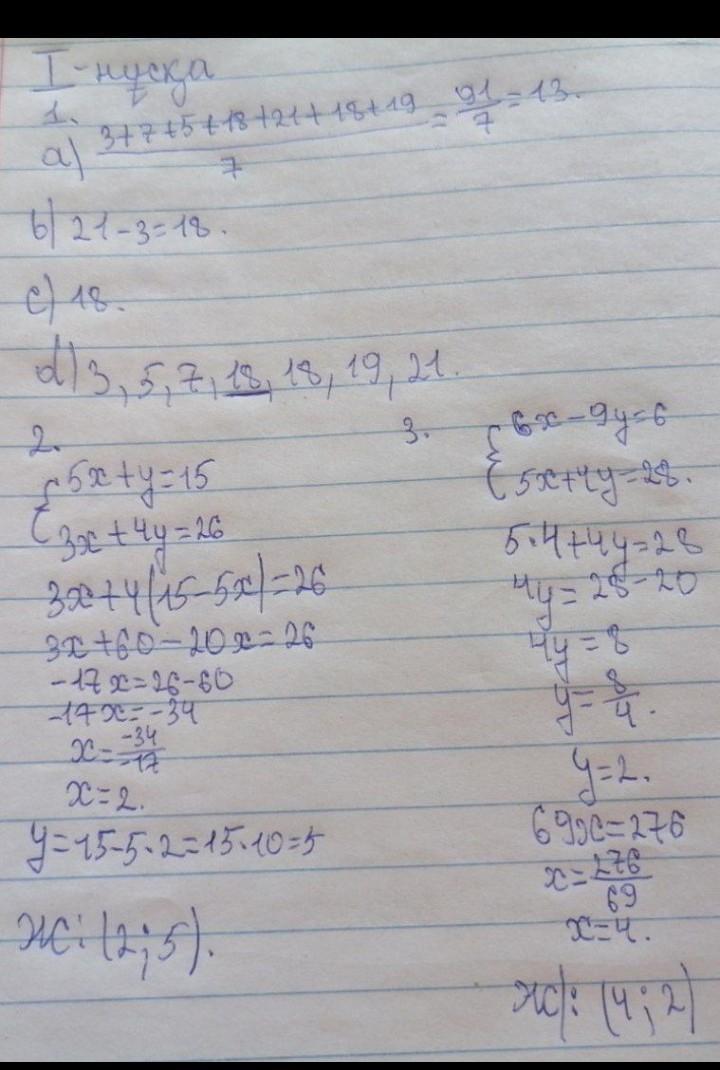 I-нұсқа
1.
a) (3+7+5+18+21+18+19)/7 = 91/7 = 13.
b) 21-3=18.
c) 18.
d) 3, 5, 7, 18, 18, 19, 21.
2.
{ 5x+y=15
3x+4y=26
3x+4(15-5x)=26
3x+60-20x=26
-17x=26-60
-17x=-34
x=-34/-17
x=2.
y=15-5·2=15·10=5
Ж: (2;5).
3.
{ 6x-9y=6
5x+4y=28.
5·4+4y=28
4y=28-20
4y=8
y=8/4.
y=2.
69x=276
x=276/69
x=4.
Ж: (4;2)